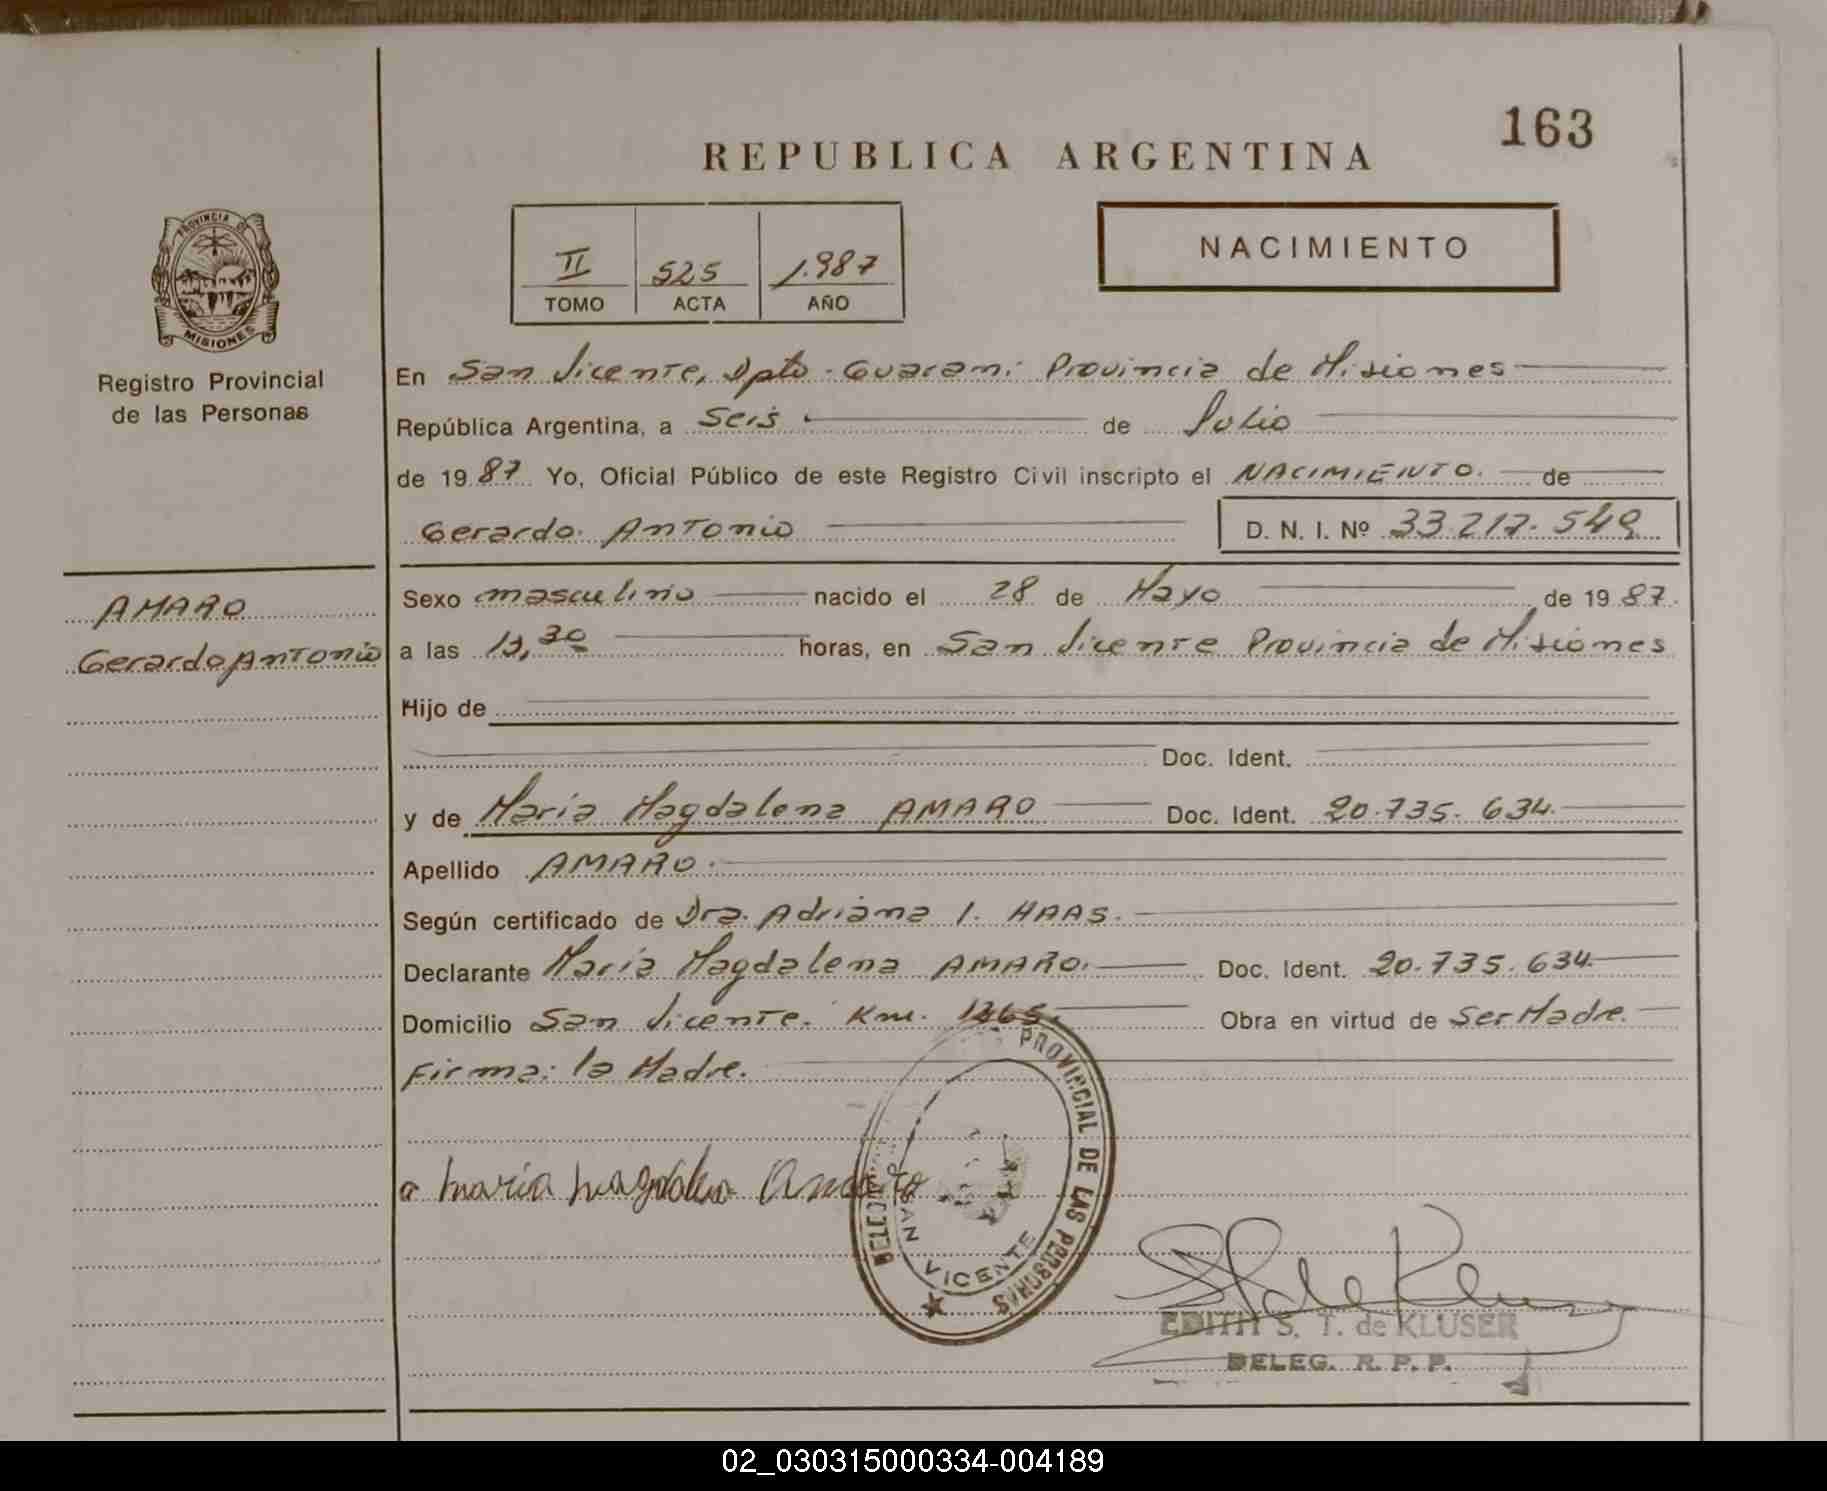 163
REPUBLICA ARGENTINA
PROVINCIA DE
MISIONES
Registro Provincial
de las Personas
II 525 1.987
TOMO ACTA AÑO
NACIMIENTO
En San Vicente, Dpto. Guarani Provincia de Misiones
República Argentina, a Seis de Julio
de 1987 Yo, Oficial Público de este Registro Civil inscripto el NACIMIENTO. de
Gerardo Antonio D. N. I. Nº 33.217.549
AMARO
Gerardo Antonio
Sexo masculino nacido el 28 de Mayo de 1987.
a las horas, en San Vicente Provincia de Misiones
Hijo de
Doc. Ident.
y de Maria Magdalena AMARO Doc. Ident. 20.735.634
Apellido AMARO.
Según certificado de Dra. Adriana I. HAAS.
Declarante Maria Magdalena AMARO. Doc. Ident. 20.735.634
Domicilio San Vicente. Km. Obra en virtud de Ser Madre.
Firma: la Madre.
PROVINCIAL DE LAS PERSONAS
SAN VICENTE
EDITH S. T. de KLUSER
DELEG. R. P. P.
02_030315000334-004189